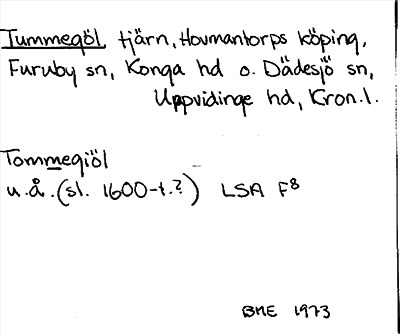 Tummegöl, tjärn, Hovmantorps köping,
Furuby sn, Konga hd o. Dädesjö sn,
Uppvidinge hd, Kron.l.
Tommegiöl
u.å. (sl. 1600-t.?) LSA F8
BME 1973